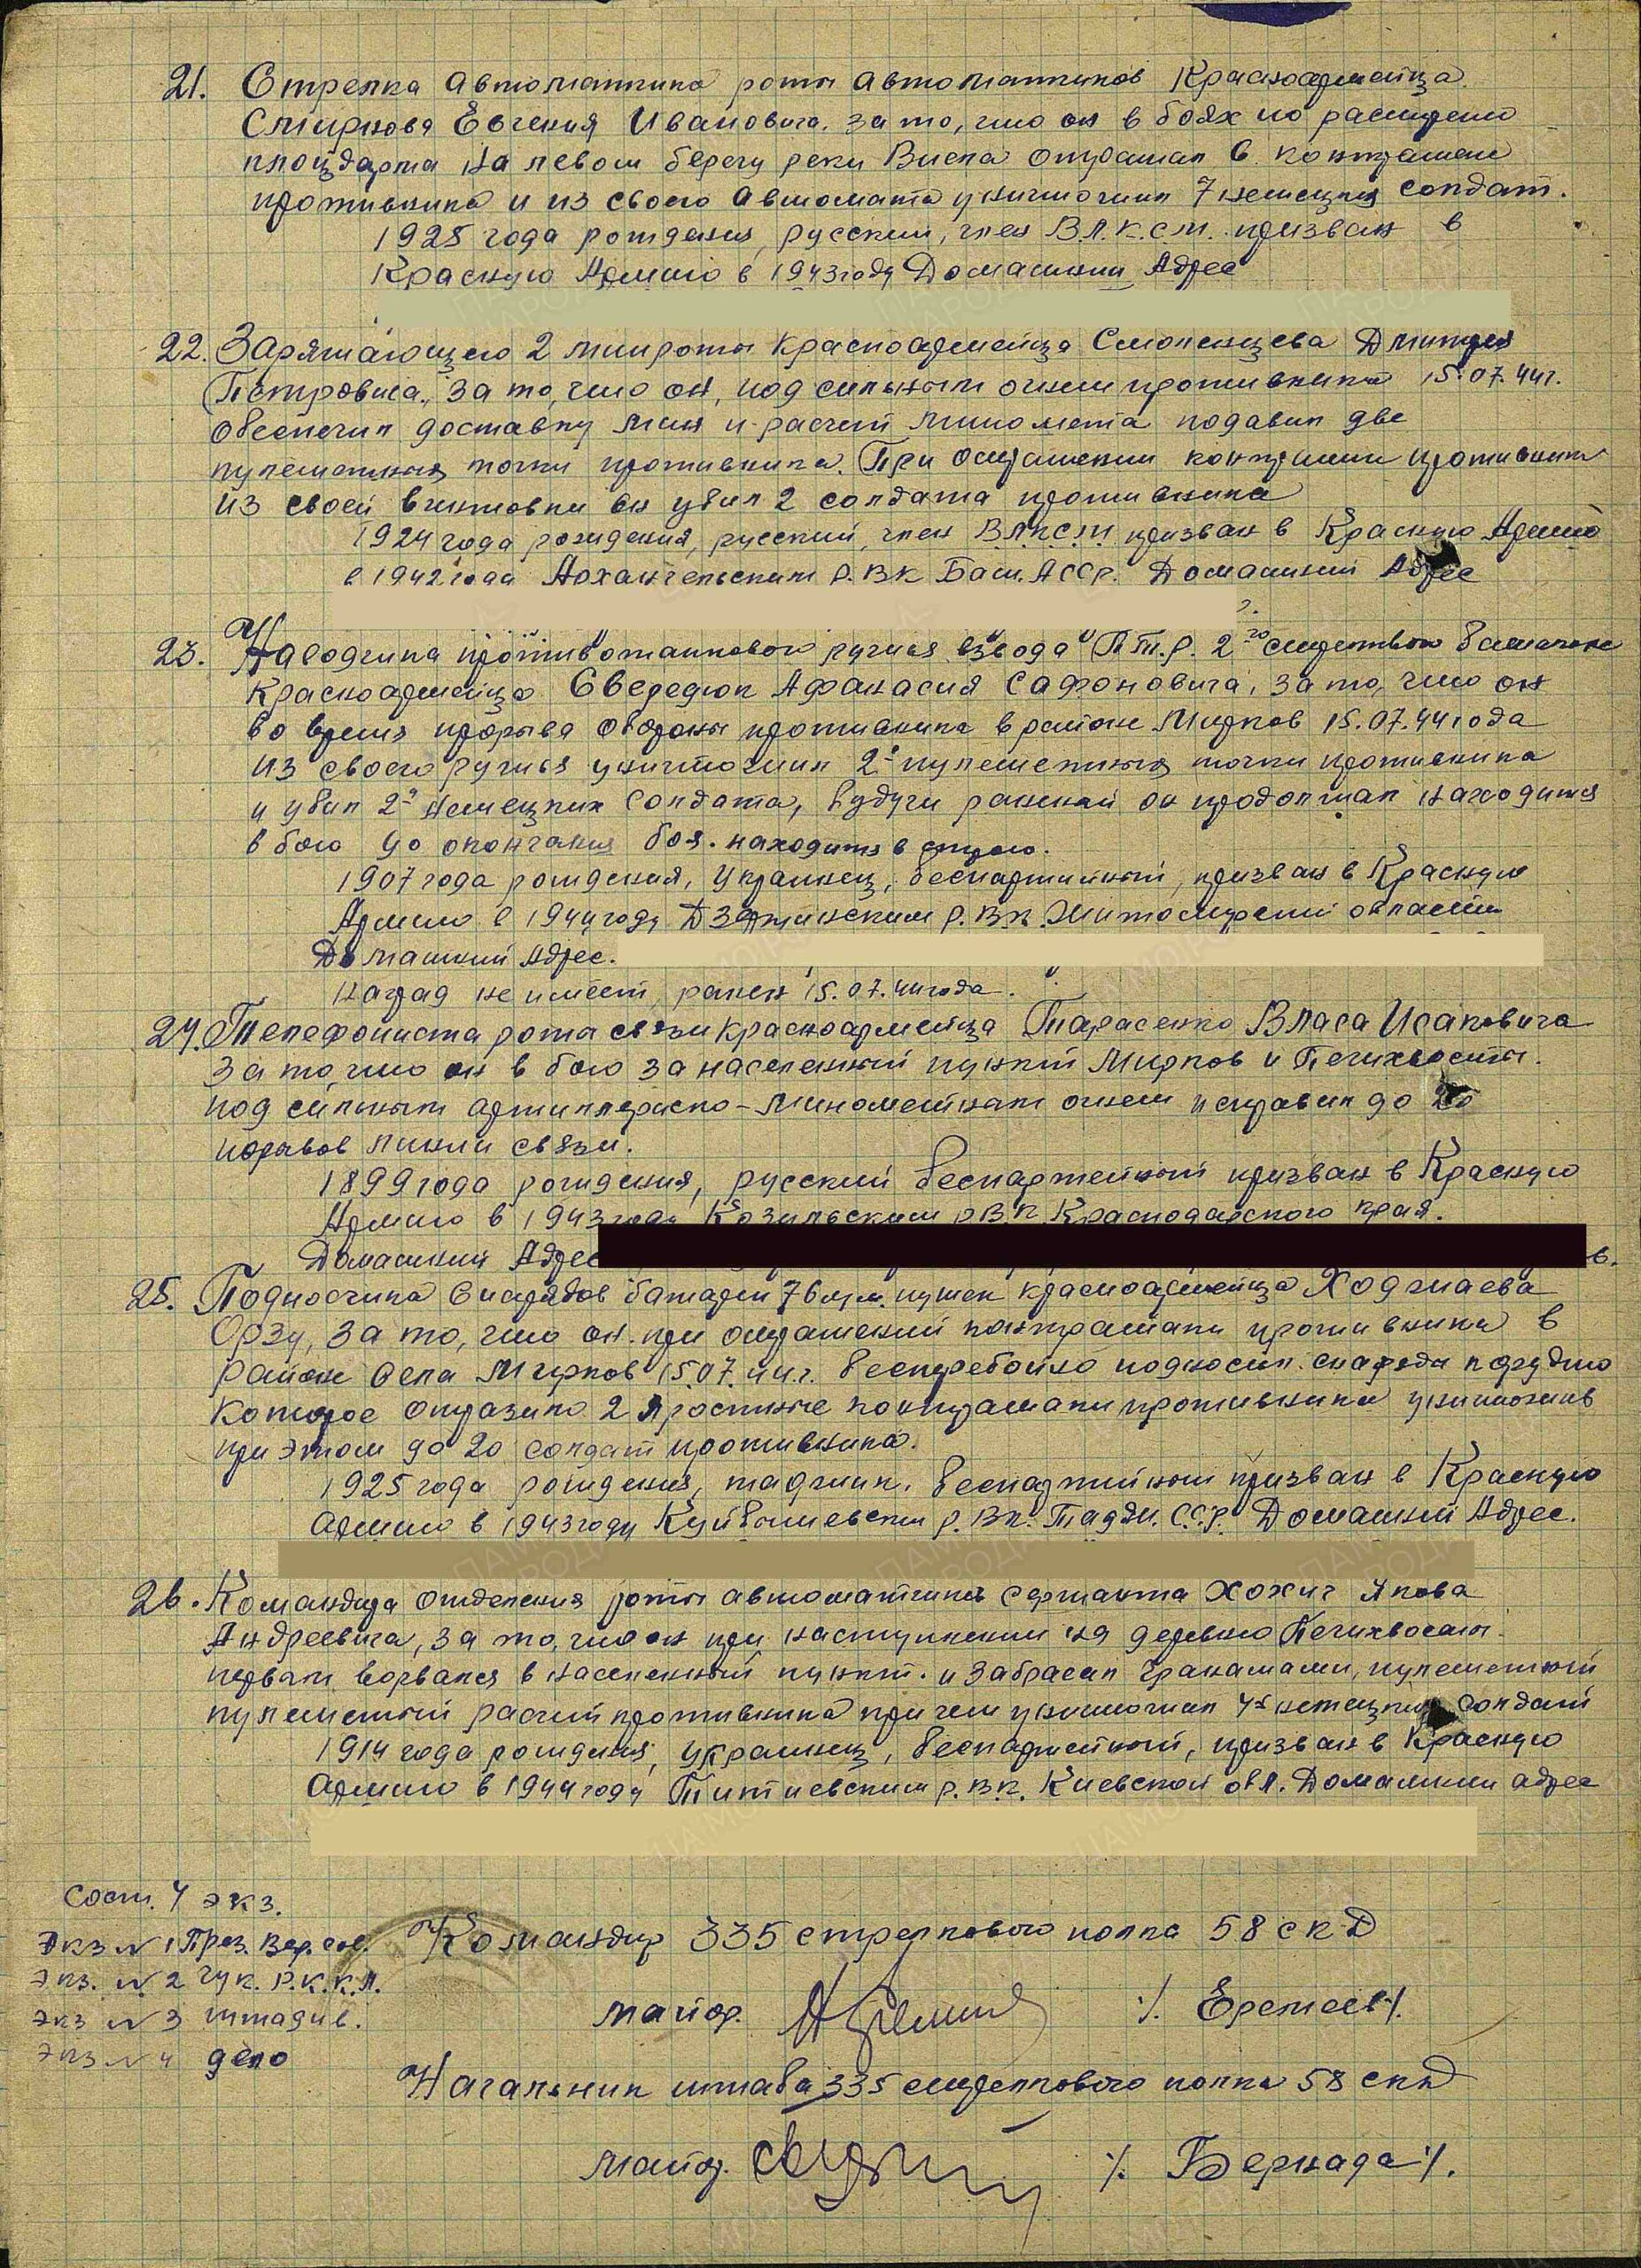 21. Стрелка автоматчика роты автоматчиков Красноармейца
Смирнова Евгения Ивановича. за то, что он в боях по расширению
плацдарма на левом берегу реки Висла отражал 6 контратак
противника и из своего автомата уничтожил 7 немецких солдат.
1925 года рождения, русский, член В.Л.К.С.М. призван в
Красную Армию в 1943 году Домашний Адрес
22. Заряжающего 2 минроты красноармейца Смоленцева Дмитрия
Петровича, за то, что он, под сильным огнем противника 15.07.44 г.
обеспечил доставку мин и расчет миномета подавил две
пулеметных точки противника. При отражении контратаки противника
из своей винтовки он убил 2 солдата противника
1924 года рождения, русский, член ВЛКСМ призван в Красную Армию
в 1942 года Архангельским Р.ВК Баш.АССР. Домашний Адрес
23. Наводчика противотанкового ружья взвода П.Т.Р. 2го стрелкового батальона
Красноармейца Свередюк Афанасия Сафоновича, за то, что он
во время прорыва обороны противника в районе Мирков 15.07.44 года
из своего ружья уничтожил 2е пулеметных точки противника
и убил 2х немецких солдата, будучи раненый он продолжал находится
в бою до окончания боя. находитя в строю.
1907 года рождения, украинец, беспартийный, призван в Красную
Армию в 1944 году Дзержинским Р.ВК. Житомирской области
Домашний Адрес.
Наград не имеет, ранен 15.07.44 года.
24. Телефониста роты связи красноармейца Тарасенко Власа Исаковича
За то, что он в бою за населенный пункт Мирков и Печихвосты.
под сильным артиллериско-минометным огнем исправил до 20
порывов линии связи.
1899 года рождения, русский беспартейный призван в Красную
Армию в 1943 году Р.В.К Краснодарского края.
Домашний Адрес в.
25. Подносчика снарядов батареи 76 м.м. пушек красноармейца Ходжаева
Орзу, за то, что он при отражений контратаки противника в
районе села Мирков 15.07.44.г. бесперебойно подносил снаряды к орудию
которое отразило 2 яростные контратаки противника уничтожив
при этом до 20 солдат противника.
1925 года рождения, таджик, беспартийный призван в Красную
армию в 1943 году Куйбышевским Р.ВК. Тадж.С.С.Р. Домашний Адрес.
26. Командира отделения роты автоматчиков сержанта Хохич Якова
Андреевича, за то, что он при наступлении на деревню Печихвосты.
первым ворвался в населенный пункт. и забрасал гранатами, пулеметный
пулеметный расчет противника при чем уничтожил 4х немецких солдат
1914 года рождения, украинец, беспартейный, призван в Красную
армию в 1944 году Титиевским Р.В.К. Киевской обл. Домашний адрес
Сост. 4 экз.
Экз № 1 През. Вер. Сов.
Экз. № 2 Гук. Р.К.К.А.
Экз № 3 штадив.
Экз № 4 дело
Командир 335 стрелкового полка 58 скд
майор. /. Еремеев /.
Начальник штаба 335 стрелкового полка 58 скд
майор. /. Бернада /.